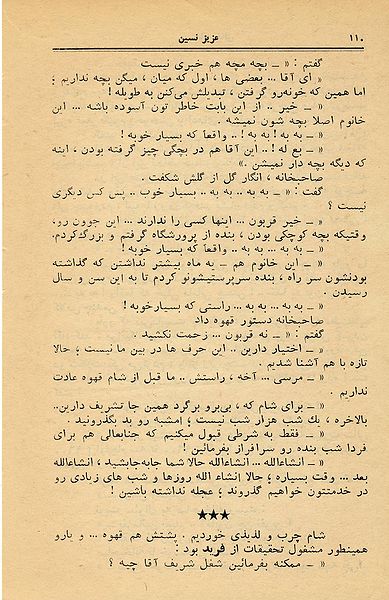 ۱۱۰ عزیز نسین
گفتم : « ــ بچه مچه هم خبری نیست
« ای آقا ... بعضی ها ، اول که میان ، میگن بچه نداریم ؛
اما همین که خونه‌رو گرفتن ، تبدیلش می‌کنن به طویله !
« ــ خیر .. از این بابت خاطر تون آسوده باشه ... این
خانوم اصلا بچه شون نمیشه .
« ــ به به ! به به ! .. واقعاً که بسیار خوبه !
« ــ بع له ! .. این آقا هم در بچگی چیز گرفته بودن ، اینه
که دیگه بچه دار نمیشن .»
صاحبخانه ، انگار گل از گلش شکفت .
گفت : « ــ به به .. به به .. بسیار خوب .. پس کس دیگری
نیست ؟
« ــ خیر قربون ... اینها کسی را ندارند ... این جوون رو،
وقتیکه بچه کوچکی بودن ، بنده از پرورشگاه گرفتم و بزرگ‌کردم.
« ــ به به ... به به .. واقعاً که بسیار خوبه !
« ــ این خانوم هم ــ یه ماه بیشتر نداشتن که گذاشته
بودنشون سر راه ، بنده سرپرستیشونو کردم تا به این سن و سال
رسیدن .
« ــ به به ... به به ... راستی که بسیارخوبه !
صاحبخانه دستور قهوه داد
گفتم : « ــ نه قربون ... زحمت نکشید .
« ــ اختیار دارین .. این حرف ها در بین ما نیست ؛ حالا
تازه با هم آشنا شدیم .
« ــ مرسی ... آخه ، راستش .. ما قبل از شام قهوه عادت
نداریم .
« ــ برای شام که ، بی‌برو برگرد همین جا تشریف دارین..
بالاخره ، یك شب هزار شب نیست ؛ امشبه رو بد بگذرونید .
« ــ فقط به شرطی قبول میکنیم که جنابعالی هم برای
فردا شب بنده رو سرافراز بفرمائین !
« ــ انشاءالله ... انشاءالله حالا شما جابه‌جابشید ، انشاءالله
بعد ... وقت بسیاره ؛ حالا انشاء الله روزها و شب های زیادی رو
در خدمتتون خواهیم گذروند ؛ عجله نداشته باشین !
★★★
شام چرب و لذیذی خوردیم . پشتش هم قهوه ... و یارو
همینطور مشغول تحقیقات از فرید بود :
« ــ ممکنه بفرمائین شغل شریف آقا چیه ؟